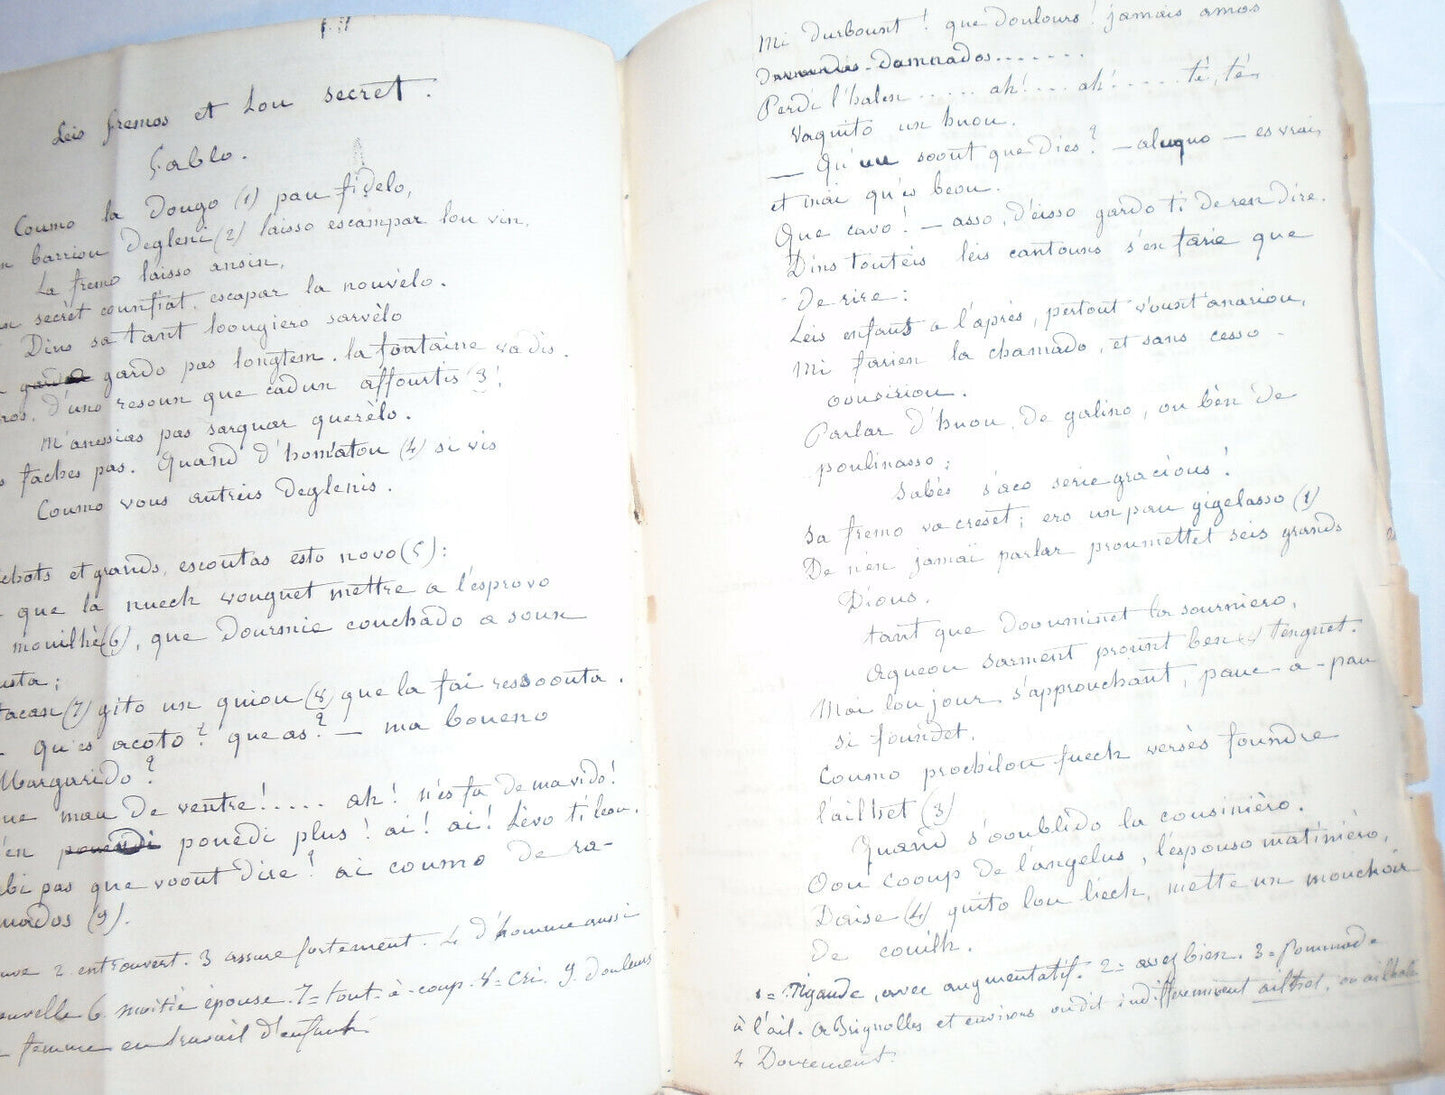 Leis fremos et Lou secret.
Fablo.
Coumo la Dougo (1) pau fidelo,
barriou degleni (2) laisso escampar lou vin,
La fremo laisso ansin,
secrèt counfiat, escapar la nouvèlo.
Dins sa tant loougiero sarvèlo
gardo pas longtem. la fontaine va dis.
d'uno resoun que cadun affourtis (3);
M'anessias pas sarquar querèlo.
faches pas. Quand d'homatou (4) si vis
Coumo vous autreis deglenis.
et grands, escoutas esto novo (5):
que la nuech vouguet mettre a l'esprovo
mouilhè (6), que dourmie couchado a soun
(7) gito un quiou (8) que la fai ressoounta.
Qu'es acoto? que as? — ma boueno
Margarido?
mau de ventre!.... ah! n'es fa de ma vido!
pouedi plus! ai! ai! Lèvo ti leou.
pas que voout dire? ai coumo de ra-
(9).
2. entrouvert. 3 assure fortement. 4 d'homme aussi
6. moitié épouse. 7= tout-à-coup. 8= cri. 9. douleurs
femme en travail d'enfant.
Mi durbount! que doulours! jamais amos
damnados.......
Perdi l'halen ..... ah!... ah!.... té, té,
Vaquito un huou.
— Qu'un soount que dies? — aluquo — es vrai,
et mai qu'es beou.
Que cavo! — asso, d'eisso gardo ti de ren dire.
Dins touteis leis cantouns s'en farie que
de rire:
Leis enfants a l'après, pertout v'ount anariou,
Mi farien la chamado, et sans cesso
oousiriou.
Parlar d'huou, de galino, ou bèn de
poulinasso;
Sabès s'aco serie gracious!
Sa fremo va creset; ero un pau gigelasso (1)
De n'en jamaï parlar proumettet seis grands
Dious.
tant que doouminet la sourniero,
Aqueou sarment prount ben tenguet.
Mai lou jour s'approuchant, pauc-a-pau
si foundet,
Coumo prochi lou fuech versès foundre
l'ailhet (3)
Quand s'ooublido la cousinièro.
Oou cooup de l'angelus, l'espouso matinièro,
Daise (4) quito lou liech, mette un mouchoir
de couilh.
1 = Nigaude, avec augmentatif. 2 = assez bien. 3 = Pommade
à l'ail. A Brignolles et environs on dit indifféremment ailhet, ou ailholi
4 Doucement.